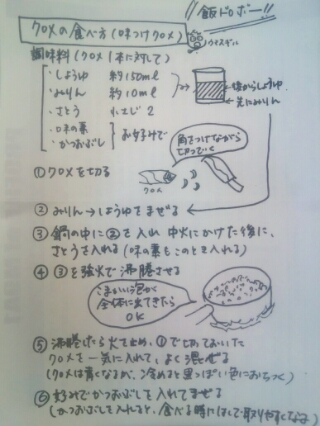 "飯ドロボー"
クロメの食べ方(味つけクロメ)
調味料(クロメ1本に対して)
・しょうゆ 約150ml
・みりん 約10ml
・さとう 小さじ2
・味の素
・かつおぶし
お好みで
後からしょうゆ
先にみりん
角をつけながら
切っていく
クロメ
①クロメを切る
②みりん→しょうゆをまぜる
③鍋の中に②を入れ中火にかけた後に、
さとうを入れる(味の素もこのとき入れる)
④③を強火で沸騰させる
こまかい泡が
全体に出てきたら
OK
⑤沸騰したら火を止め、①で切っておいた
クロメを一気に入れて、よく混ぜる
(クロメは青くなるが、冷めると黒っぽい色におちつく)
⑥好みでかつおぶしを入れてまぜる
(かつおぶしを入れると、食べる時にはしで取りやすくなる)